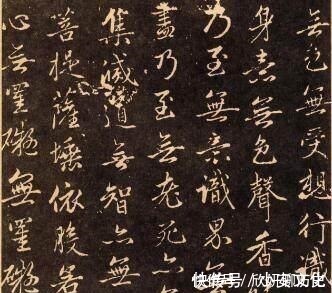 無色無受想行識
身意無色聲香
乃至無意識界無
盡乃至無老死亦
集滅道無智亦無
菩提薩埵依般若
心無罣礙無罣礙
快传号/